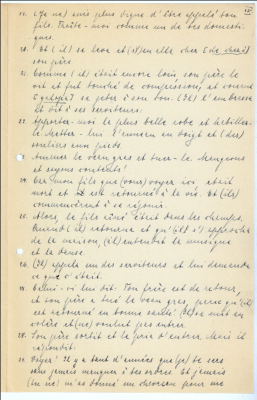 19. (Je ne) suis plus digne d'être appelé ton
fils. Traite-moi comme un de tes domesti-
ques.
20. Et (il) se leve et (il) alla chez
son père
Comme (il) était encore loin, son père le
vit et fut touché de compassion, et courut
se jeter à son cou. (Il) l'embrasse
et dit à ses serviteurs:
22. Apportez-moi la plus belle robe et habillez-
le. Mettez-lui l'anneau au doigt et (des)
souliers aux pieds.
Amenez le veau gras et tuez-le. Mangeons
et soyons contents!
24. Car mon fils que (vous) voyez ici, était
mort et est retourné à la vie. Et (ils)
commencèrent à se réjouir.
25. Alors, le fils aîné était dans les champs.
Quand (il) retourna et qu'(il) s'approcha
de la maison, (il) entendit la musique
et la danse.
26. (Il) appela un des serviteurs et lui demanda
ce que c'était.
Celui-ci lui dit: Ton frère est de retour,
et ton père a tué le veau gras, parce qu'(il)
est retourné en bonne santé. se mit en
colère et (ne) voulut pas entrer.
28. Son père sortit et le pria d'entrer. Mais il
répondit:
29. Voyez! Il y a tant d'années que (je) te sers
sans jamais manquer à tes ordres. Et jamais
(tu ne) m'as donné un chevreau pour me